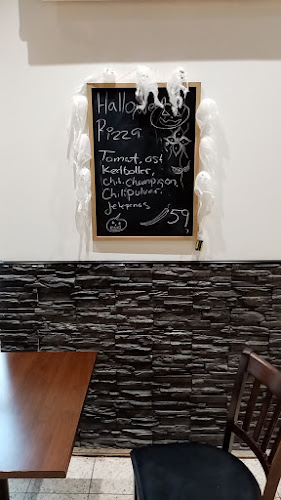 Hallo
Pizza
Tomat, ost
Kødboller,
chili, champignon,
Chilipulver,
jelepenos
59